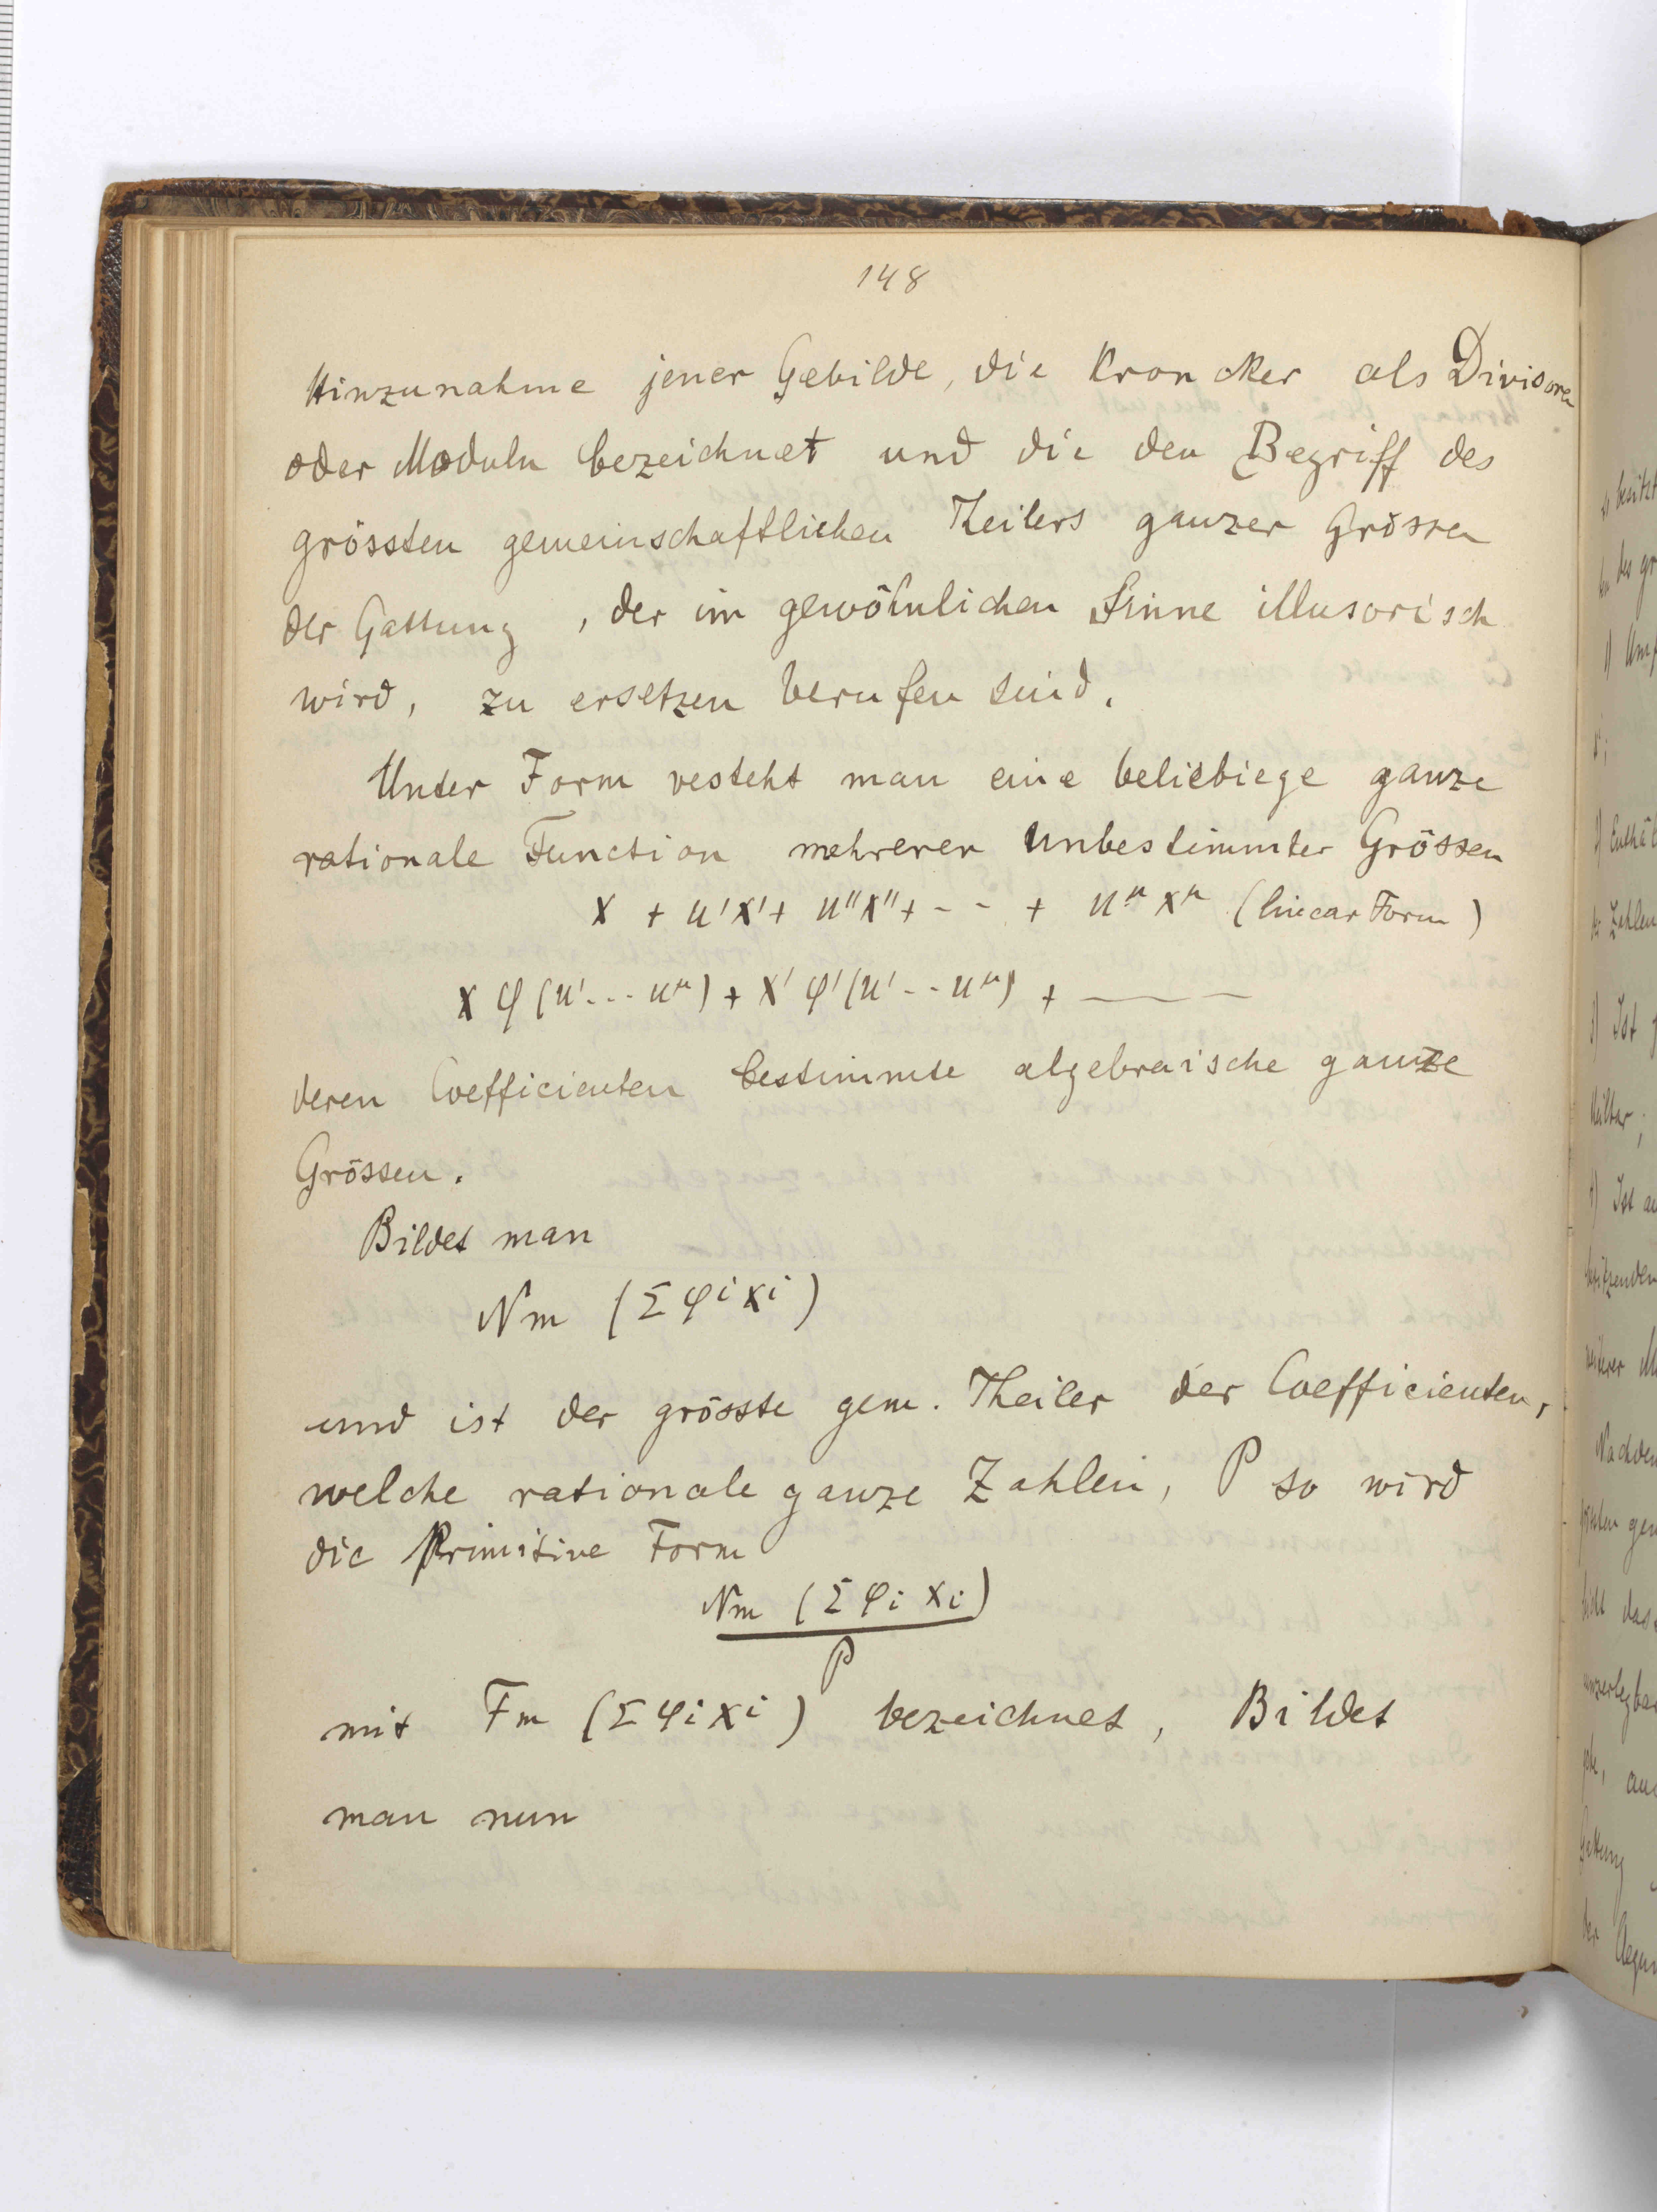 148
Hinzunahme jener Gebilde, die Kronecker als Divisoren
oder Moduln bezeichnet und die den Begriff des
grössten gemeinschaftlichen Theilers ganzer Grössen
der Gattung , der im gewöhnlichen Sinne illusorisch
wird, zu ersetzen berufen sind.
Unter Form vesteht man eine beliebiege ganze
rationale Function mehrerer unbestimmter Grössen
x + u'x' + u''x'' + - - + uᵘ xᵘ (linear Form)
x φ (u' . . . uᵘ) + x' φ' (u' - - uᵘ) + ———
deren Coefficienten bestimmte algebraische ganze
Grössen.
Bildet man
Nm (Σ φⁱ xⁱ)
und ist der grösste gem. Theiler der Coefficienten,
welche rationale ganze Zahlen, P so wird
die Primitive Form
Nm (Σ φi xi)
P
mit Fm (Σ φi xi) bezeichnet, Bildet
man nun